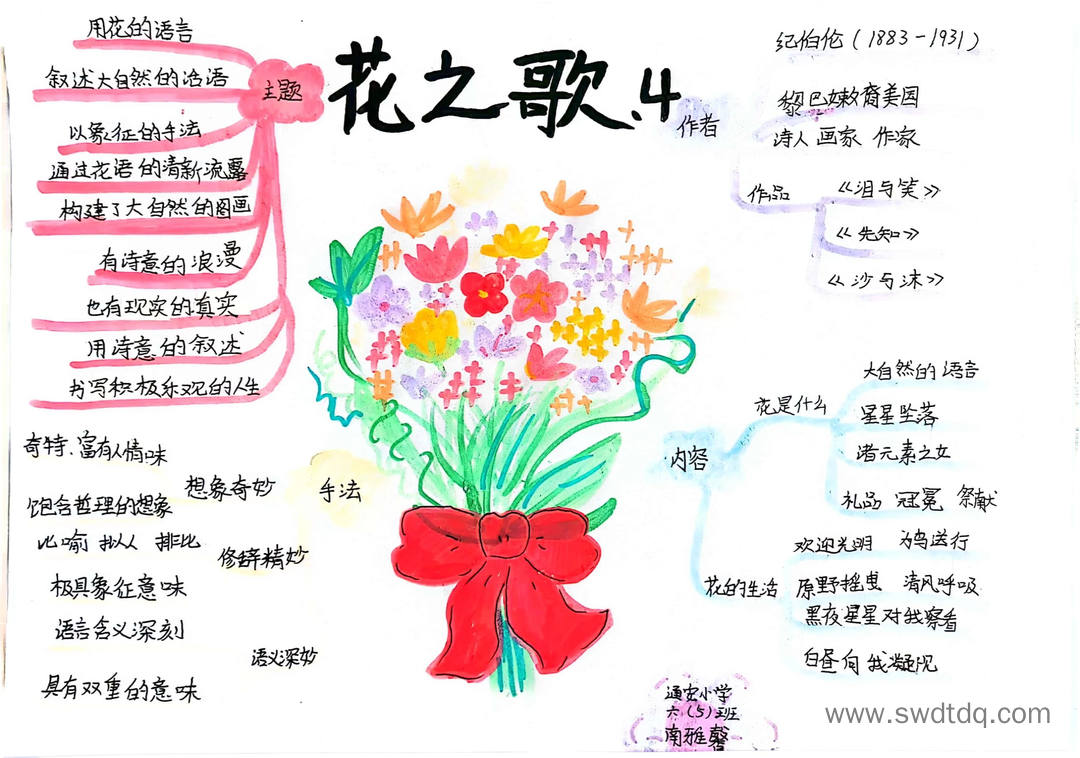 花之歌.4
主题
用花的语言
叙述大自然的话语
以象征的手法
通过花语的清新流露
构建了大自然的图画
有诗意的浪漫
也有现实的真实
用诗意的叙述
书写积极乐观的人生
作者
纪伯伦(1883-1931)
黎巴嫩裔美国
诗人 画家 作家
作品
《泪与笑》
《先知》
《沙与沫》
手法
想象奇妙
奇特、富有人情味
饱含哲理的想象
修辞精妙
比喻 拟人 排比
极具象征意味
语义深妙
语言含义深刻
具有双重的意味
内容
花是什么
大自然的语言
星星坠落
诸元素之女
礼品 冠冕 祭献
花的生活
欢迎光明 为鸟送行
原野摇曳 清风呼吸
黑夜星星对我察看
白昼向我凝视
通安小学
六(5)班
南雅馨
www.swdtdq.com